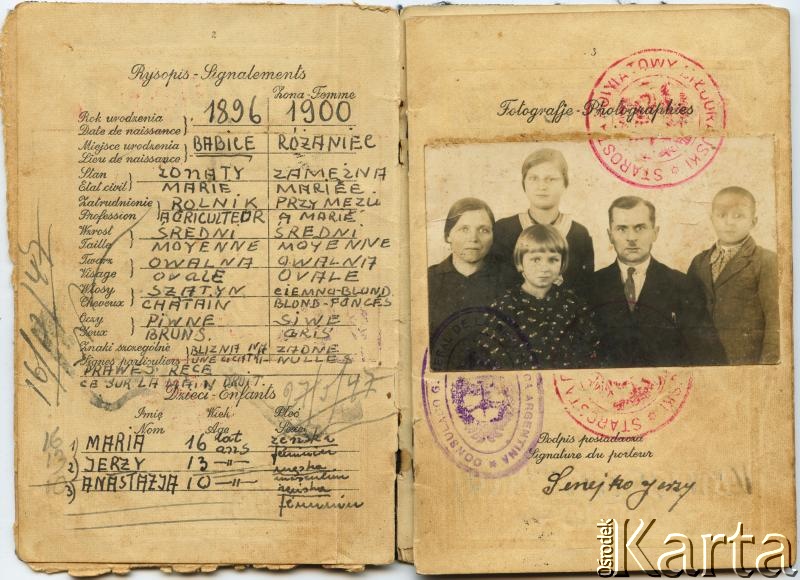 2
Rysopis - Signalements
Żona - Femme
Rok urodzenia
Date de naissance } 1896 1900
Miejsce urodzenia
Lieu de naissance } BABICE RÓŻANIEC
Stan ŻONATY ZAMĘŻNA
Etat civil } MARIE MARIÉE
Zatrudnienie ROLNIK PRZY MĘŻU
Profession } AGRICULTEUR A MARIÉ
Wzrost ŚREDNI ŚREDNI
Taille } MOYENNE MOYENNE
Twarz OWALNA OWALNA
Visage } OVALE OVALE
Włosy SZATYN CIEMNO-BLOND
Cheveux } CHATAIN BLOND-FONCÉS
Oczy PIWNE SIWE
Yeux } BRUNS GRIS
Znaki szczególne BLIZNA NA ŻADNE
Signes particuliers } UNE CICATRI- NULLES
PRAWEJ RĘCE
CE SUR LA MAIN DROIT.
27/5/47
Dzieci - Enfants
Imię Wiek Płeć
Nom Age Sexe
1) MARIA 16 lat żeńska
ans féminin
2) JERZY 13 -"- męska
masculin
3) ANASTAZJA 10 -"- żeńska
féminin
3
Fotografje - Photographies
STAROSTA POWIATOWY BIŁGORAJSKI
CONSULADO GENERAL DE LA REPUBLICA ARGENTINA
Podpis posiadacza
Signature du porteur
Senejko Jerzy
Ośrodek
Karta